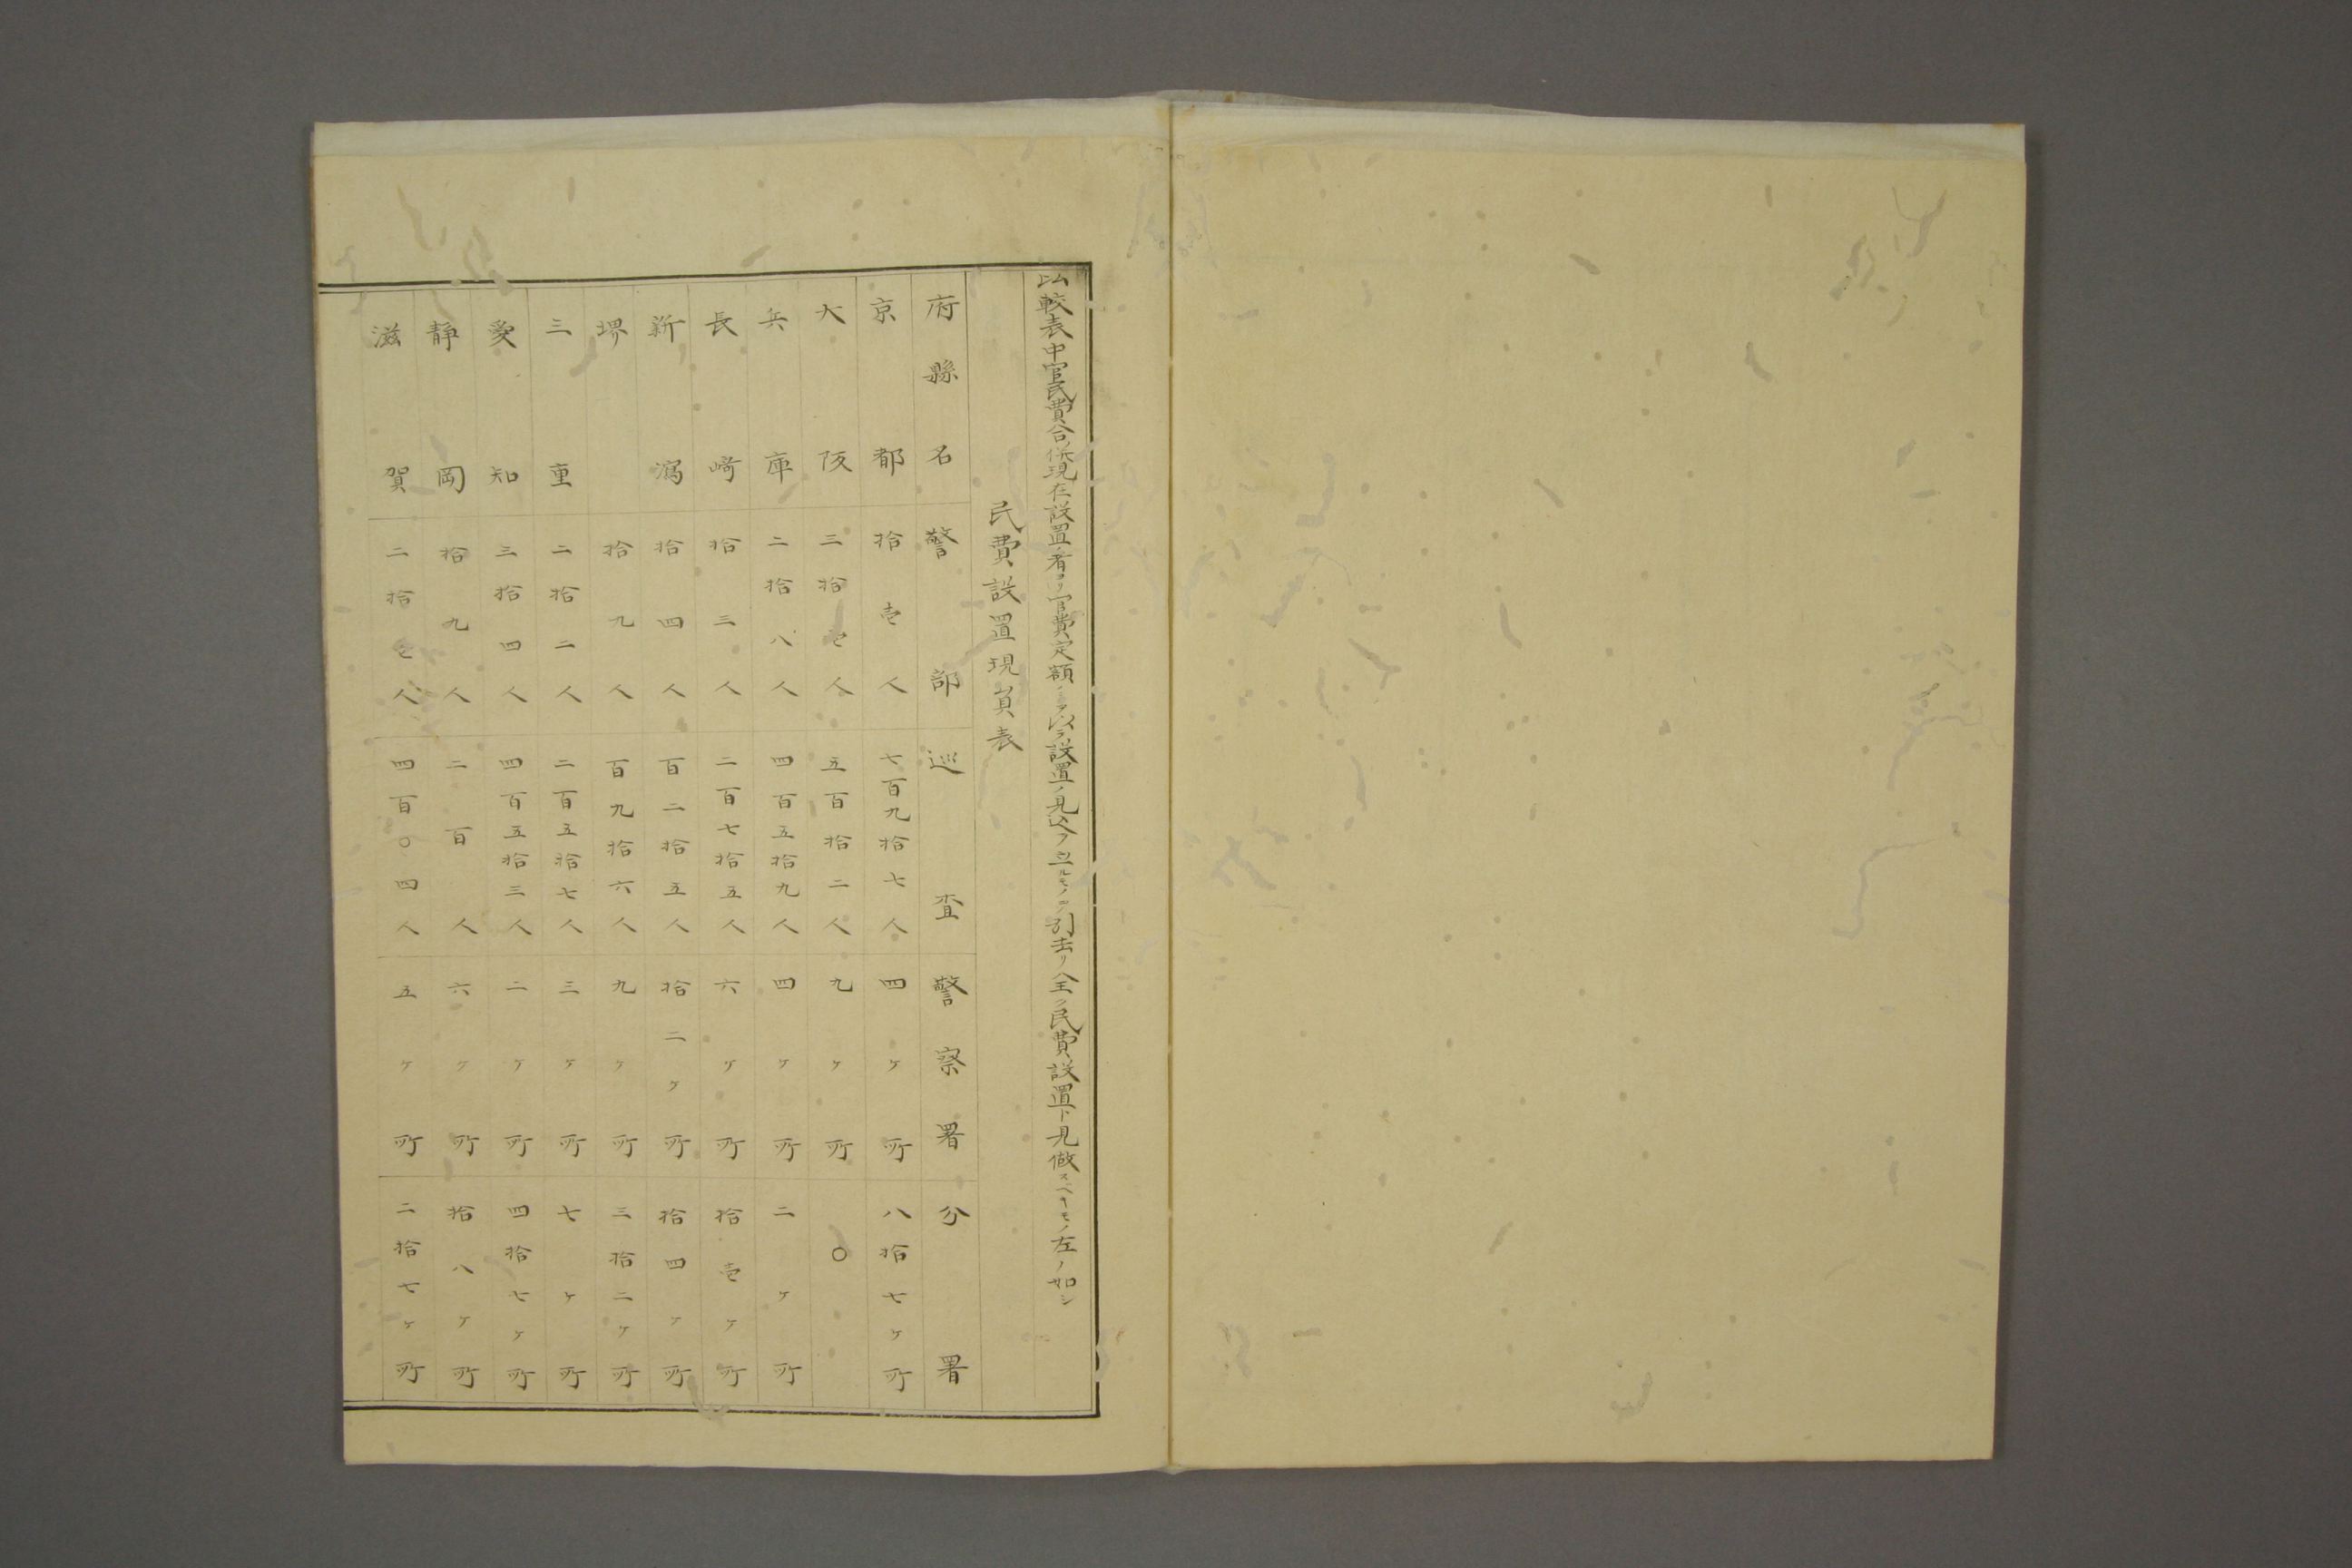 比較表中官民費合併現在設置ノ者ヨリ官費定額ノミヲ以テ設置ノ見込ヲ立ルモノヲ引去リ全ク民費設置ト見做スベキモノ左ノ如シ
民費設置現員表
府縣名 警部 巡査 警察署 分署
京都 拾壱人 七百九拾七人 四ヶ所 八拾七ヶ所
大阪 三拾七人 五百拾二人 九ヶ所 〇
兵庫 二拾八人 四百五拾九人 四ヶ所 二ヶ所
長崎 拾三人 二百七拾五人 六ヶ所 拾壱ヶ所
新潟 拾四人 百二拾五人 拾二ヶ所 拾四ヶ所
堺 拾九人 百九拾六人 九ヶ所 三拾二ヶ所
三重 二拾二人 二百五拾七人 三ヶ所 七ヶ所
愛知 三拾四人 四百五拾三人 二ヶ所 四拾七ヶ所
静岡 拾九人 二百人 六ヶ所 拾八ヶ所
滋賀 二拾七人 四百〇四人 五ヶ所 二拾七ヶ所